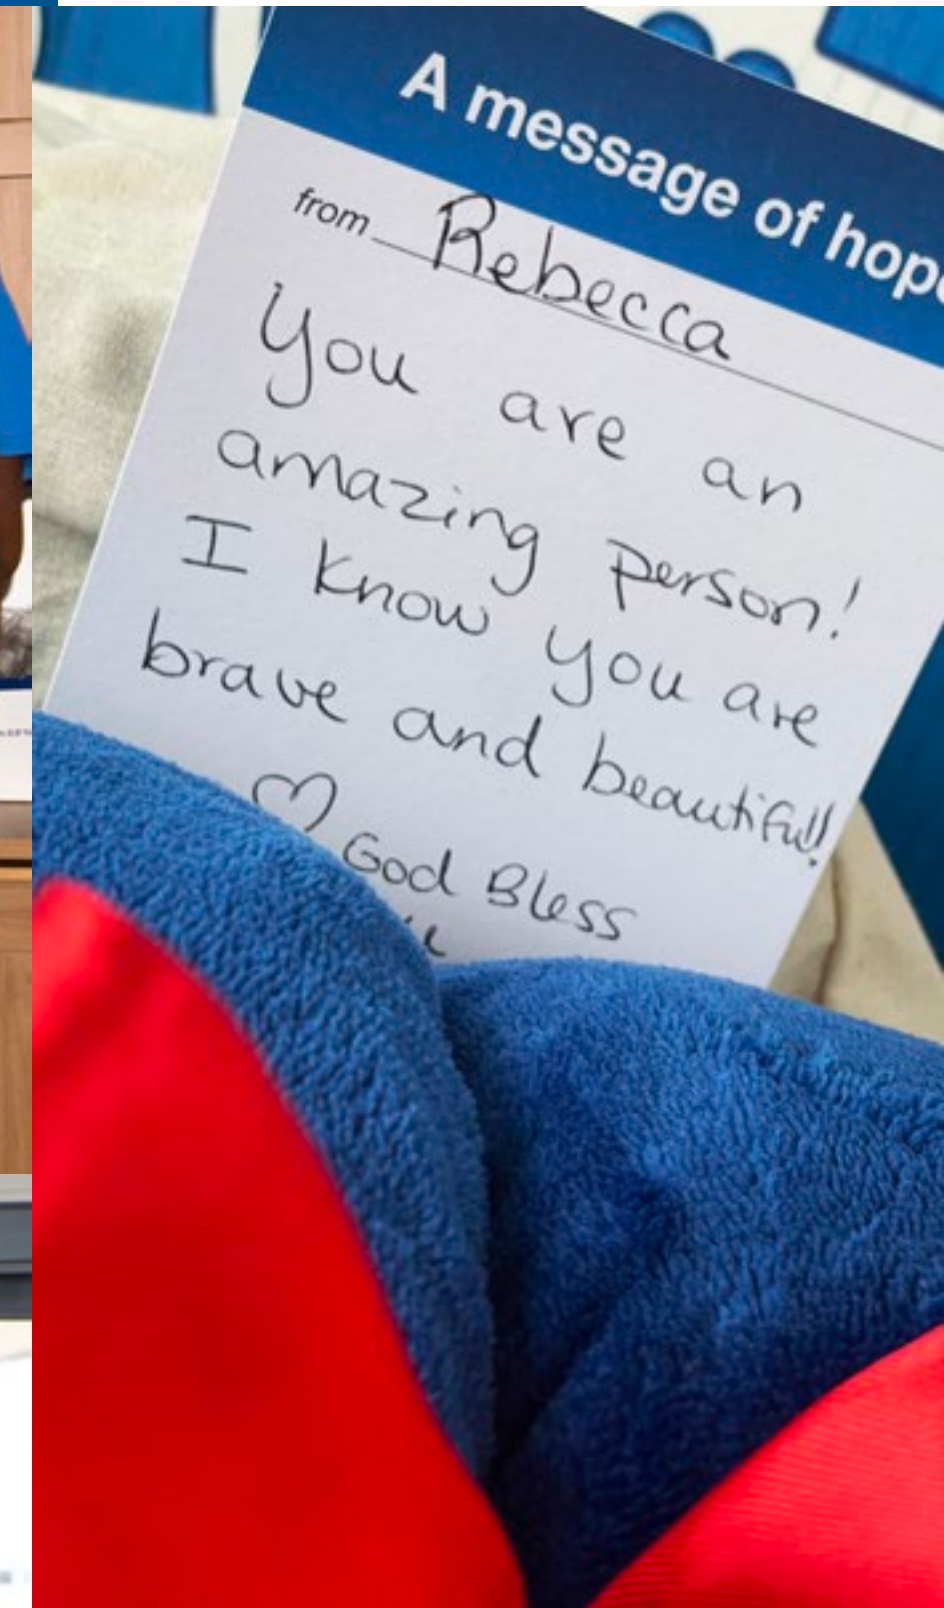 A message of hope
from Rebecca
You are an
amazing person!
I know you are
brave and beautiful!!
God Bless